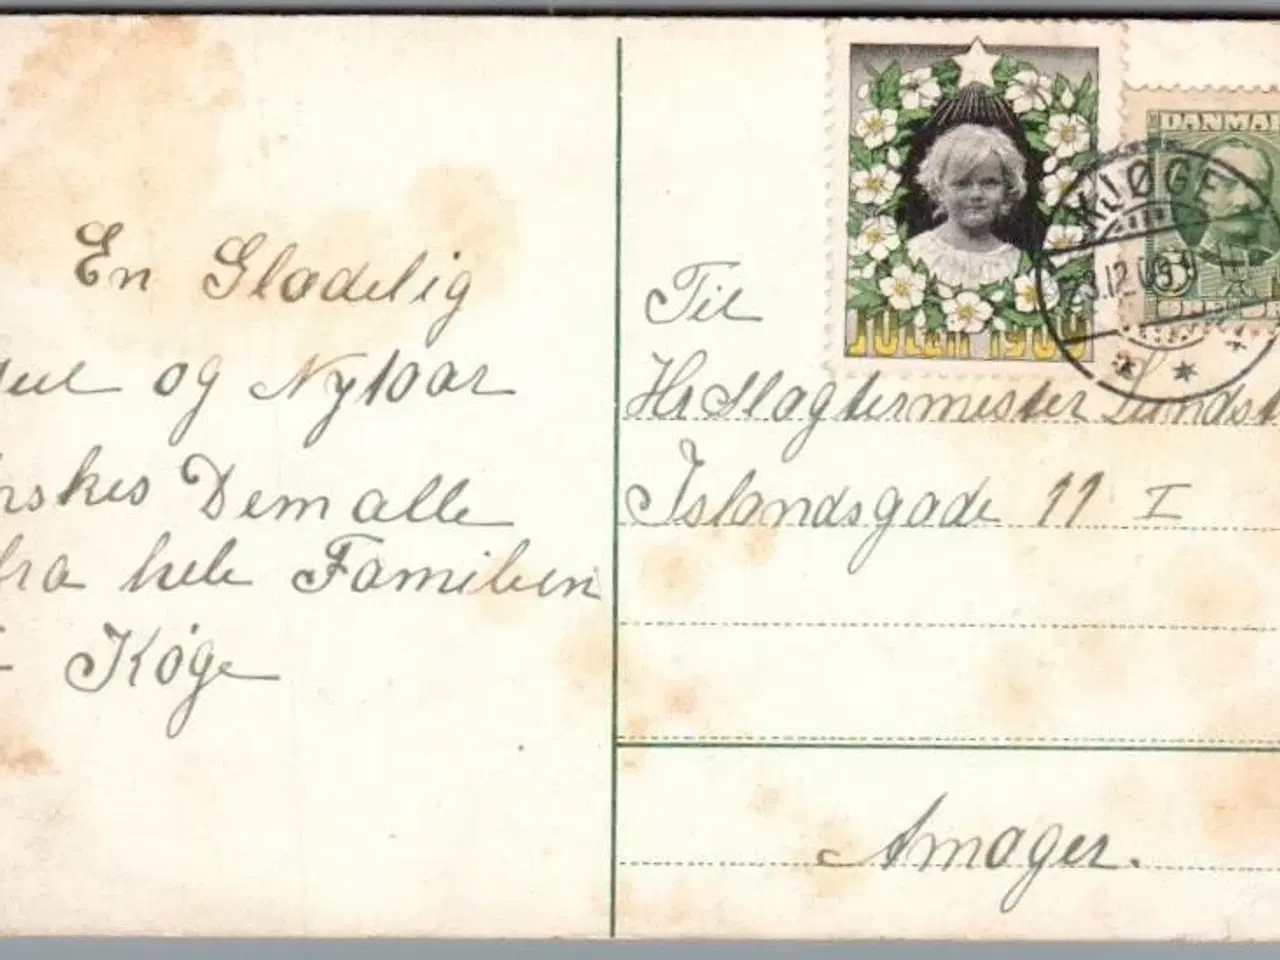 En Glædelig
Jul og Nytaar
ønskes Dem alle
fra hele Familien
i Køge
JULEN 1909
DANMA
KJØGE
23.12.09
Til
Hr Slagtermester Lundst
Islandsgade 11 I
Amager.